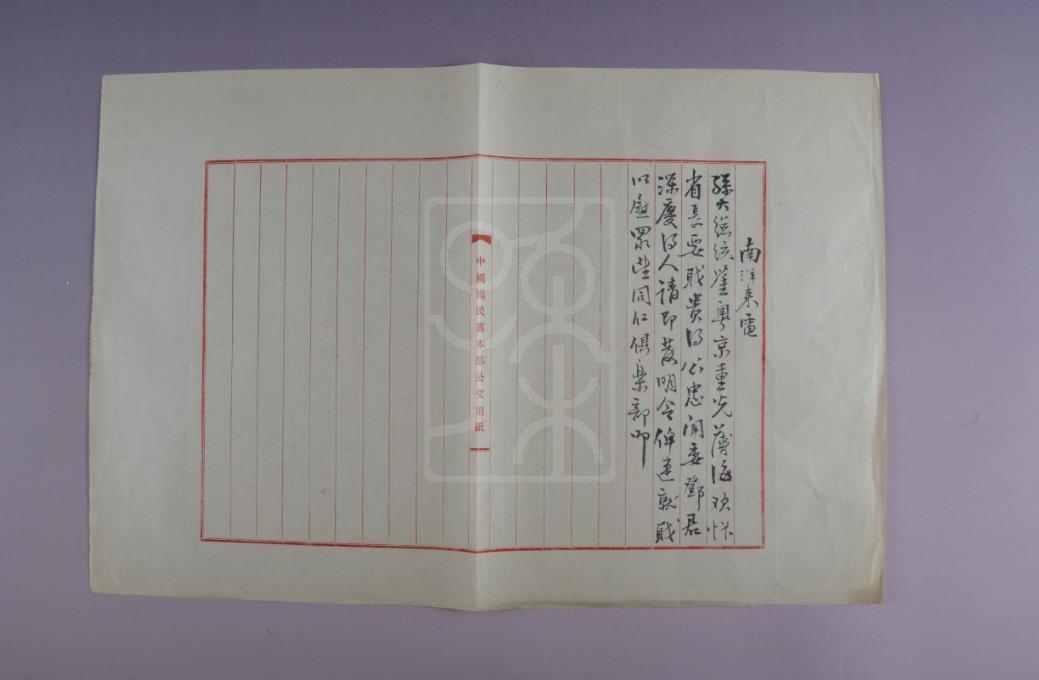 南洋来電
孫大總統鑒粤京重光薄海欢忭
省長要職贵得公忠闻委鄧君
深慶得人請即发明令俾速就職
以慰眾望同仁俱樂部叩
中國國民黨本部公文用紙